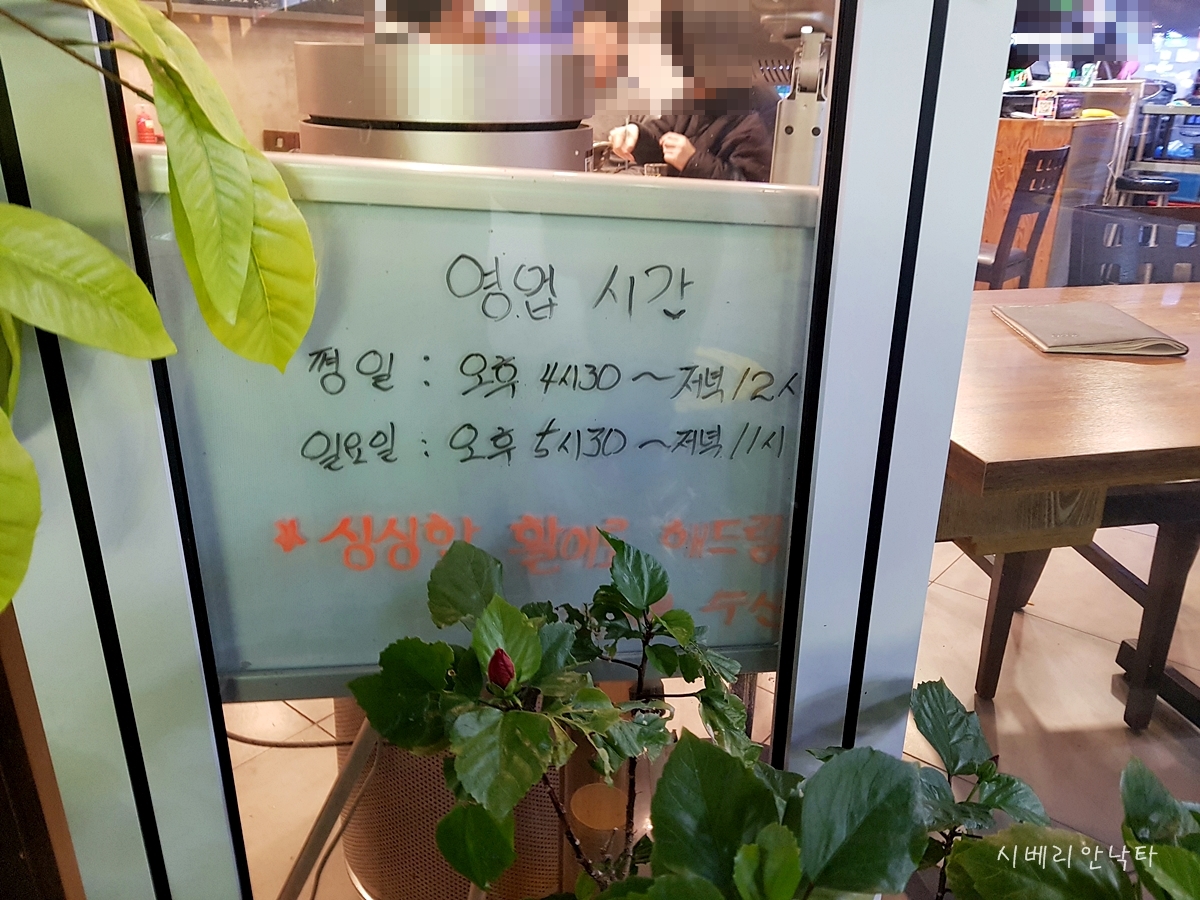 영업 시간
평일 : 오후 4시30 ~ 저녁 12시
일요일 : 오후 5시30 ~ 저녁 11시
* 싱싱한 활어로 해드림
수산
시베리안낙타